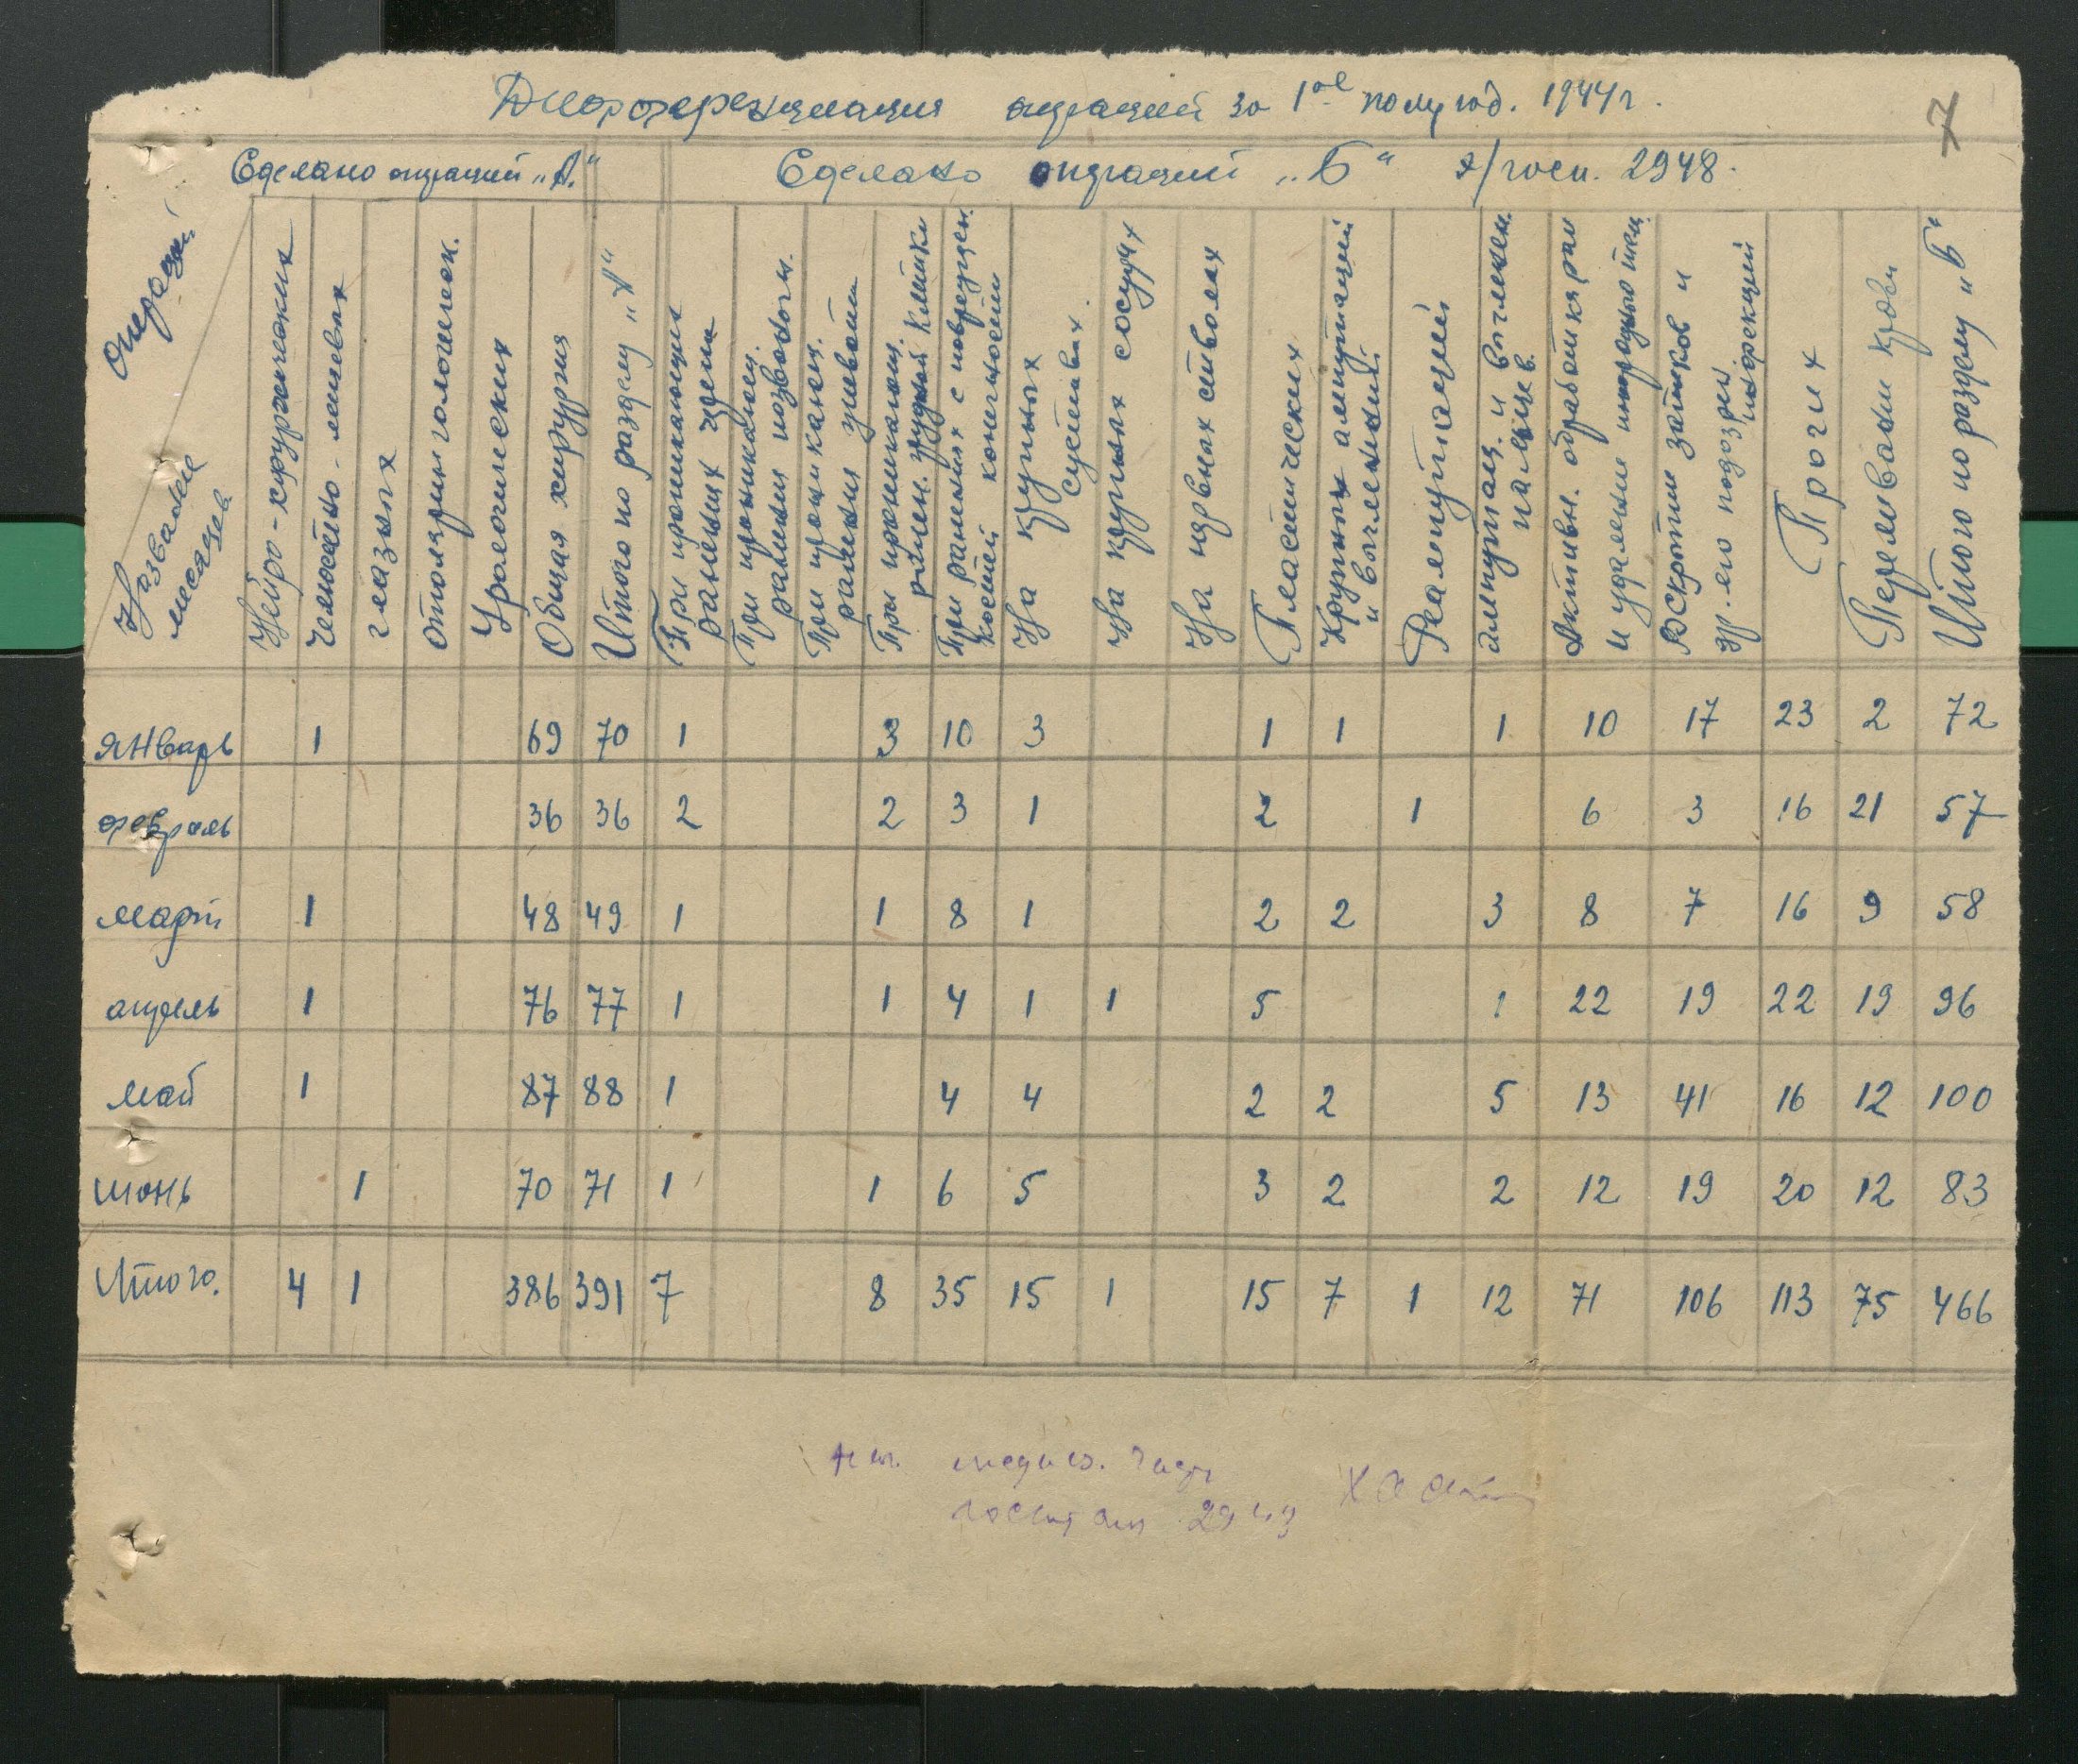 Дифференциация операций за 1ое полугод. 1944 г.
7
Сделано операций „А“
Сделано операций „Б“ э/госп. 2948.
Операций
Название месяцев
Нейро-хирургических
Челюстно-лицевых
глазных
Отоляринголологическ.
Урологических
Общая хирургия
Итого по разделу „А“
При проникающих ранениях черепа
При проникающ. ранении позвоночн.
При проникающ. ранения живота
При проникающ. ранен. грудной клетки
При ранениях с поврежден. костей конечностей
На крупных суставах.
На крупных сосудах
На нервных стволах
Пластических
Крупных ампутаций и вычленений
Реампутаций
Ампутац. и вычленен. пальцев.
Активн. обработки ран и удаление инородного тела
Вскрытии затеков и др. по подозрен. инфекций
Прочих
Переливани крови
Итого по разделу „Б“
январь 1 69 70 1 3 10 3 1 1 1 10 17 23 2 72
февраль 36 36 2 2 3 1 2 1 6 3 16 21 57
март 1 48 49 1 1 8 1 2 2 3 8 7 16 9 58
апрель 1 76 77 1 1 4 1 1 5 1 22 19 22 19 96
май 1 87 88 1 4 4 2 2 5 13 41 16 12 100
июнь 1 70 71 1 1 6 5 3 2 2 12 19 20 12 83
Итого. 4 1 386 391 7 8 35 15 1 15 7 1 12 71 106 113 75 466
Нач. медиц. части
госпиталя 2948